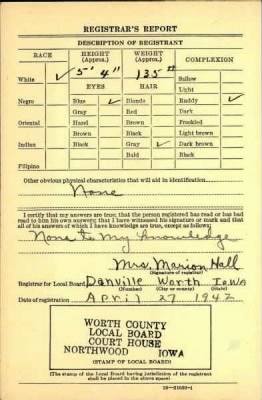 REGISTRAR'S REPORT
DESCRIPTION OF REGISTRANT
RACE HEIGHT (Approx.) WEIGHT (Approx.) COMPLEXION
White ✓ 5' 4" 135# Sallow
Light
EYES HAIR
Negro Blue ✓ Blonde Ruddy ✓
Gray Red Dark
Oriental Hazel Brown Freckled
Brown Black Light brown
Indian Black Gray ✓ Dark brown
Bald Black
Filipino
Other obvious physical characteristics that will aid in identification
None
I certify that my answers are true; that the person registered has read or has had read to him his own answers; that I have witnessed his signature or mark and that all of his answers of which I have knowledge are true, except as follows:
None to My knowledge
Mrs. Marion Hall
(Signature of registrar)
Registrar for Local Board Danville Worth Iowa
(Number) (City or county) (State)
Date of registration April 27 1942
WORTH COUNTY
LOCAL BOARD
COURT HOUSE
NORTHWOOD IOWA
(STAMP OF LOCAL BOARD)
(The stamp of the Local Board having jurisdiction of the registrant shall be placed in the above space)